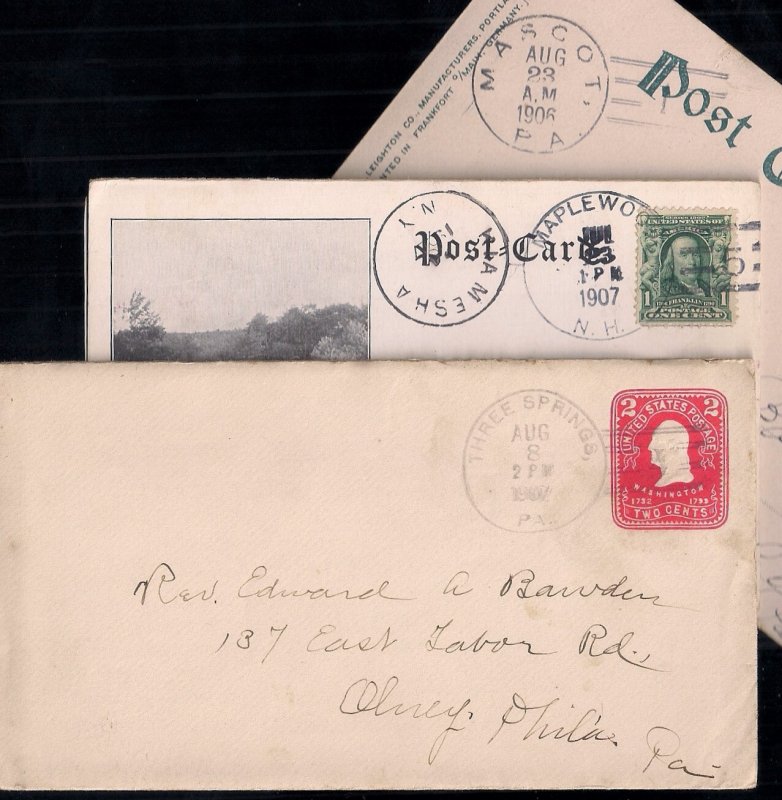 LEIGHTON CO., MANUFACTURERS, PORTLA
NTED IN FRANKFORT o/MAIN, GERMANY.)
MASCOT,
AUG
23
A.M
1906
PA.
Post C
AMESHA
N.Y.
Post Card
MAPLEWO
23
1 PM
1907
N.H.
UNITED STATES OF
1 FRANKLIN 1
POSTAGE
ONE CENT
5
THREE SPRINGS
AUG
8
2 PM
1907
PA.
2 UNITED STATES POSTAGE 2
WASHINGTON
1732 1799
TWO CENTS
Rev. Edward A Bawden
137 East Tabor Rd.,
Olney. Phila. Pa